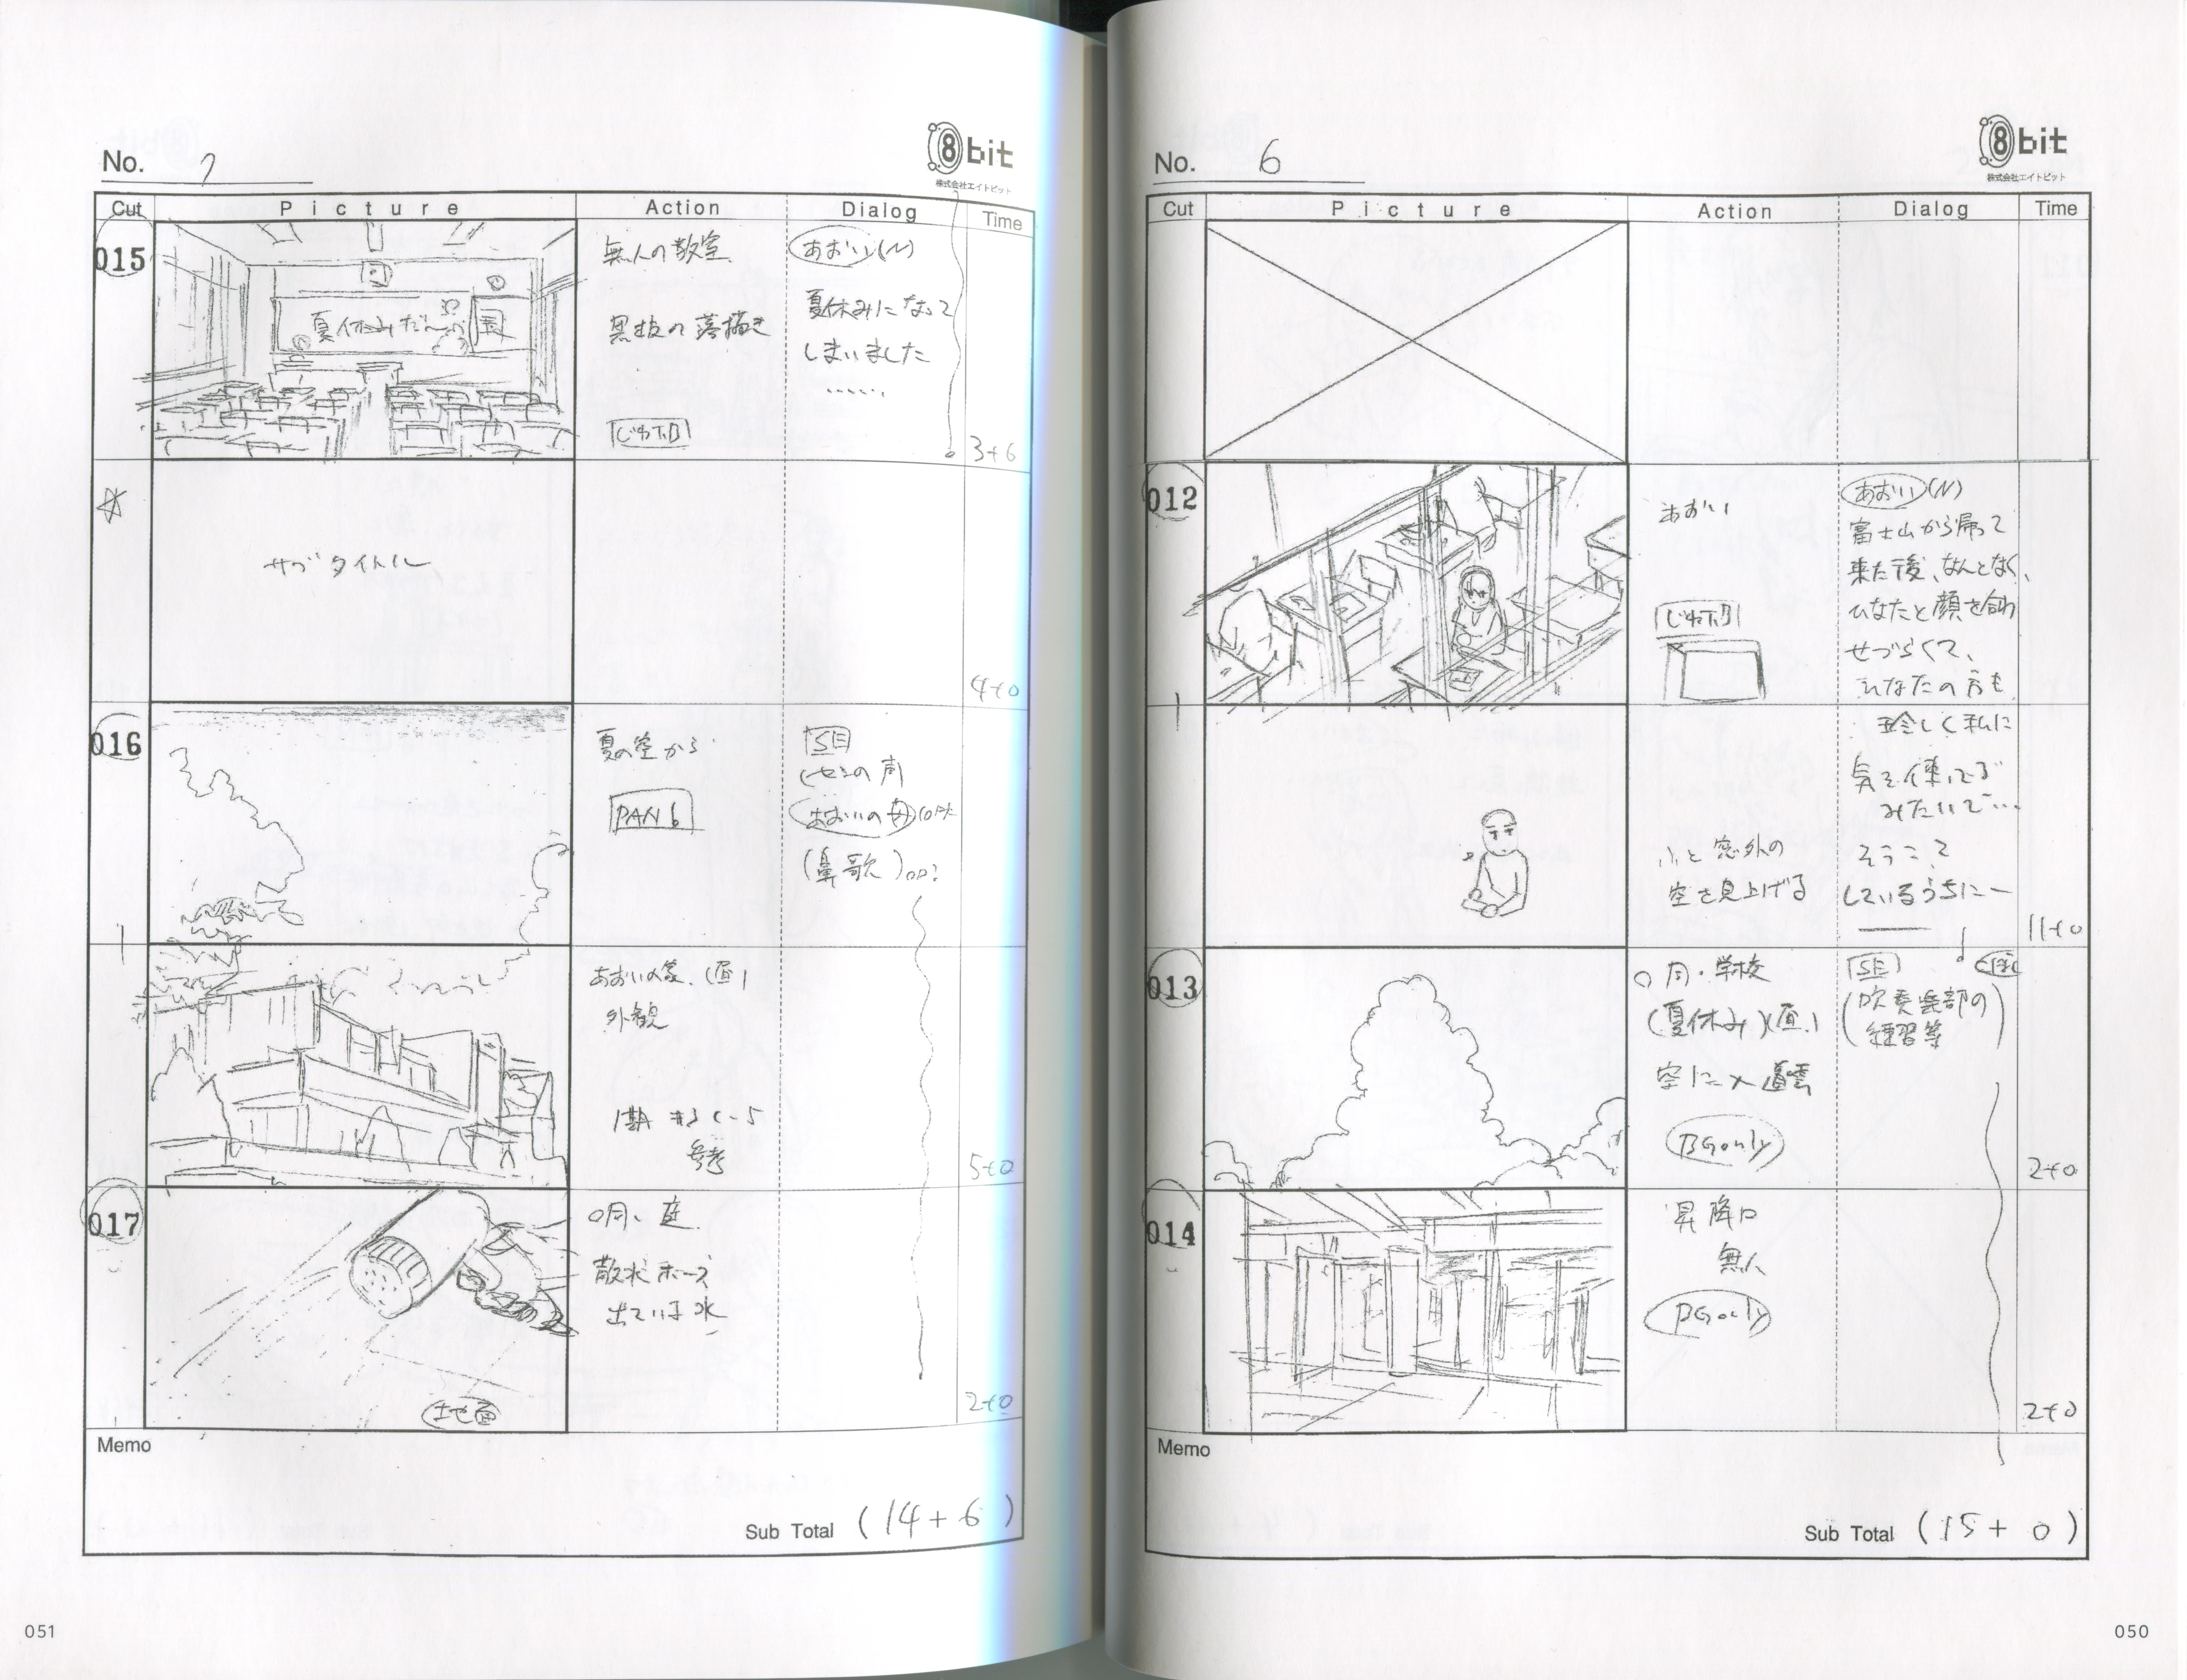 No. 6
8bit
株式会社エイトビット
Cut Picture Action Dialog Time
012
あおい
じわPAN
あおい(N)
富士山から帰って
来た後、なんとなく、
ひなたと顔を合わ
せづらくて、
ひなたの方も
珍しく私に
気を使ってる
みたいで…
ふと窓外の
空を見上げる
そうこう
しているうちにー
11+0
013
○同・学校
(夏休み)(昼)
空に入道雲
BGonly
SE
(吹奏楽部の
練習等)
2+0
014
昇降口
無人
BGonly
2+0
Memo
Sub Total (15+0)
050
No. 7
8bit
株式会社エイトビット
Cut Picture Action Dialog Time
015
夏休みだ
無人の教室
黒板の落描き
あおい(N)
夏休みになって
しまいました
……
3+6
サブタイトル
4+0
016
夏の空から
PAN
SE
(セミの声)
あおいの母
(鼻歌)
あおいの家.(昼)
外観
1期 #3 C-5
参考
5+0
017
○同、庭
散水ホース
出ている水
地面
2+0
Memo
Sub Total (14+6)
051